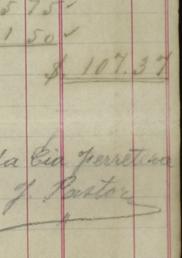 5 75
1 50
$ 107.37
la Cia Ferretera
J. Pastor